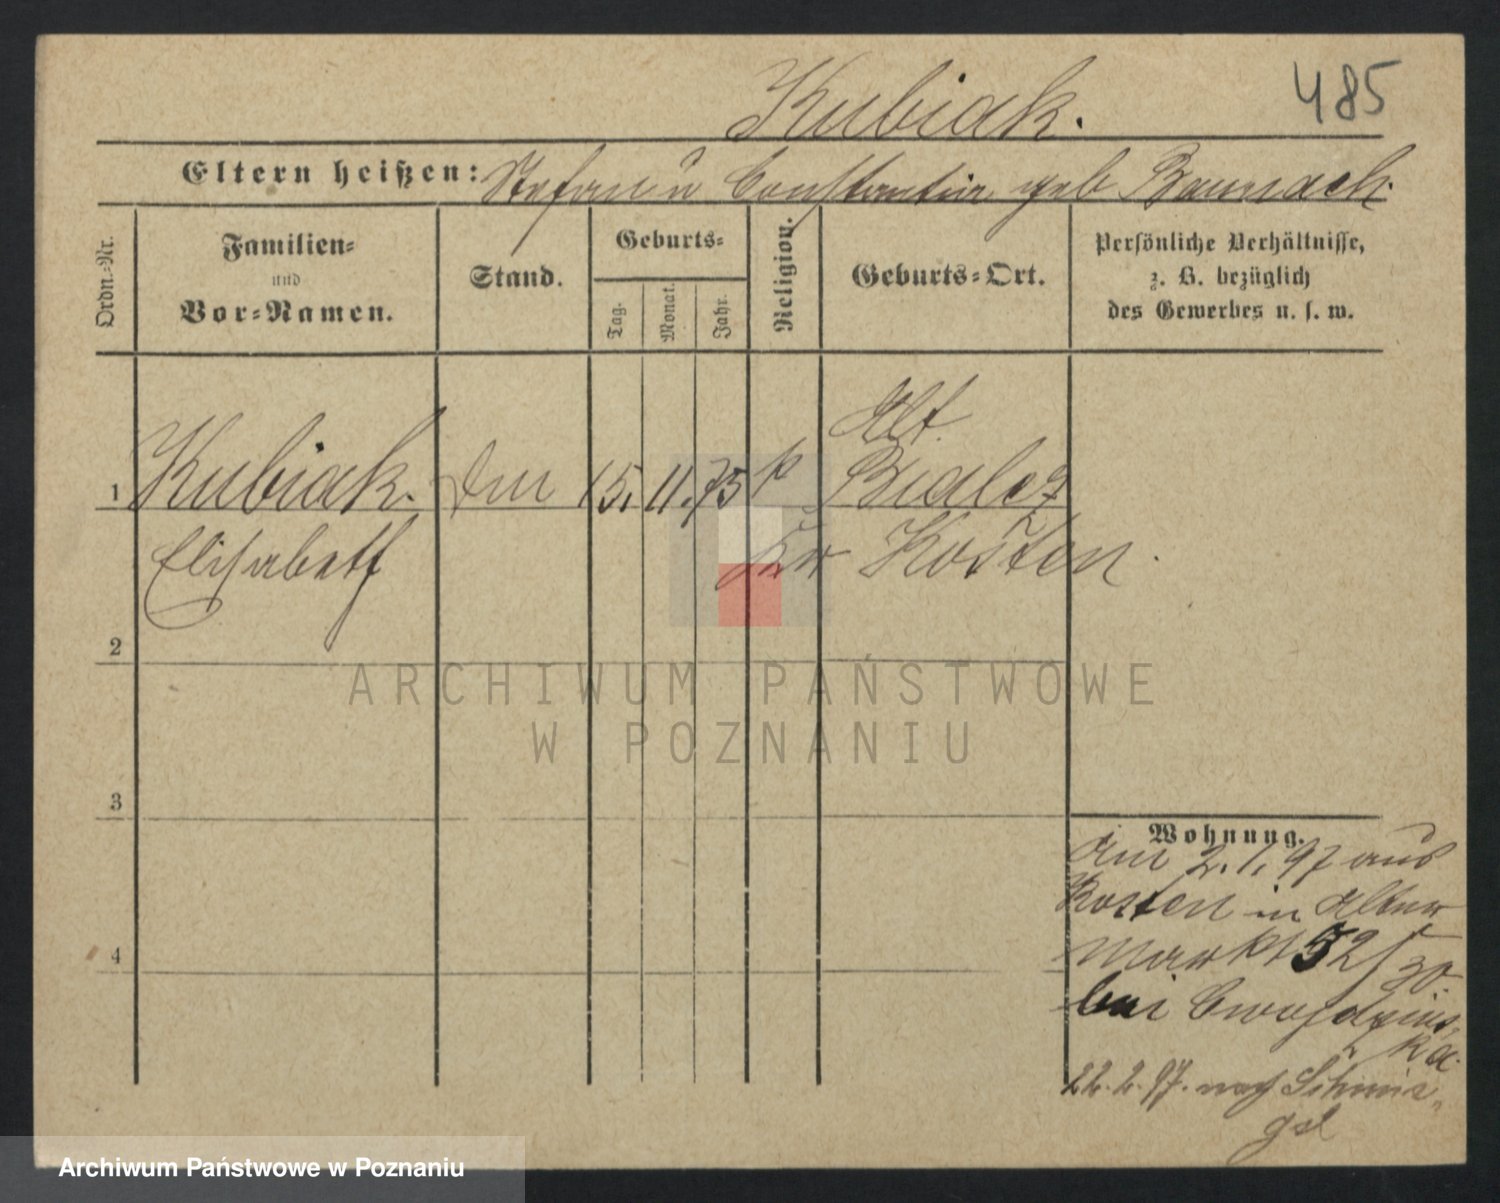 Kubiak.
485
Eltern heißen: Stefan u Constantia geb Bannach.
Ordn.-Nr.
Familien-
und
Vor-Namen.
Stand.
Geburts-
Tag.
Monat.
Jahr.
Religion.
Geburts-Ort.
Persönliche Verhältnisse,
z. B. bezüglich
des Gewerbes u. s. w.
Alt
1 Kubiak. 15. 11. 75 k Bialcz
Elisabeth Kr Kosten.
2
3
4
Wohnung.
am 2. 1. 97 aus
Kosten in Alter
Markt 52/30
bei
ka.
22. 2. 97. nach Schmie-
gel
ARCHIWUM PAŃSTWOWE
W POZNANIU
Archiwum Państwowe w Poznaniu